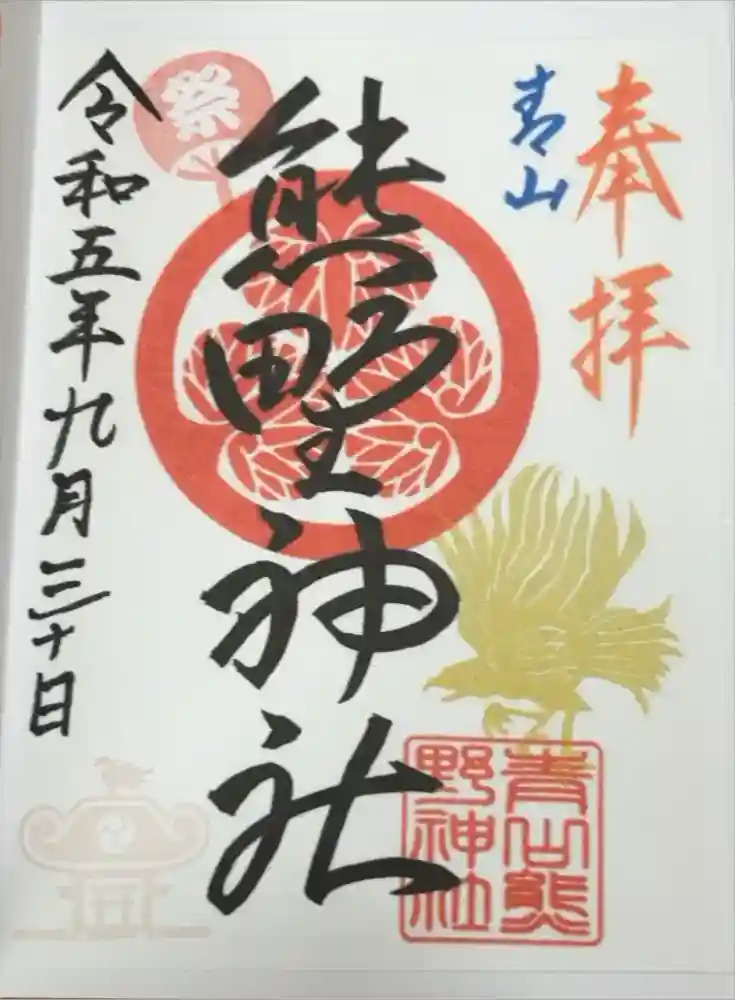 奉拝
青山
熊野神社
祭
令和五年九月三十日
青山熊
野神社